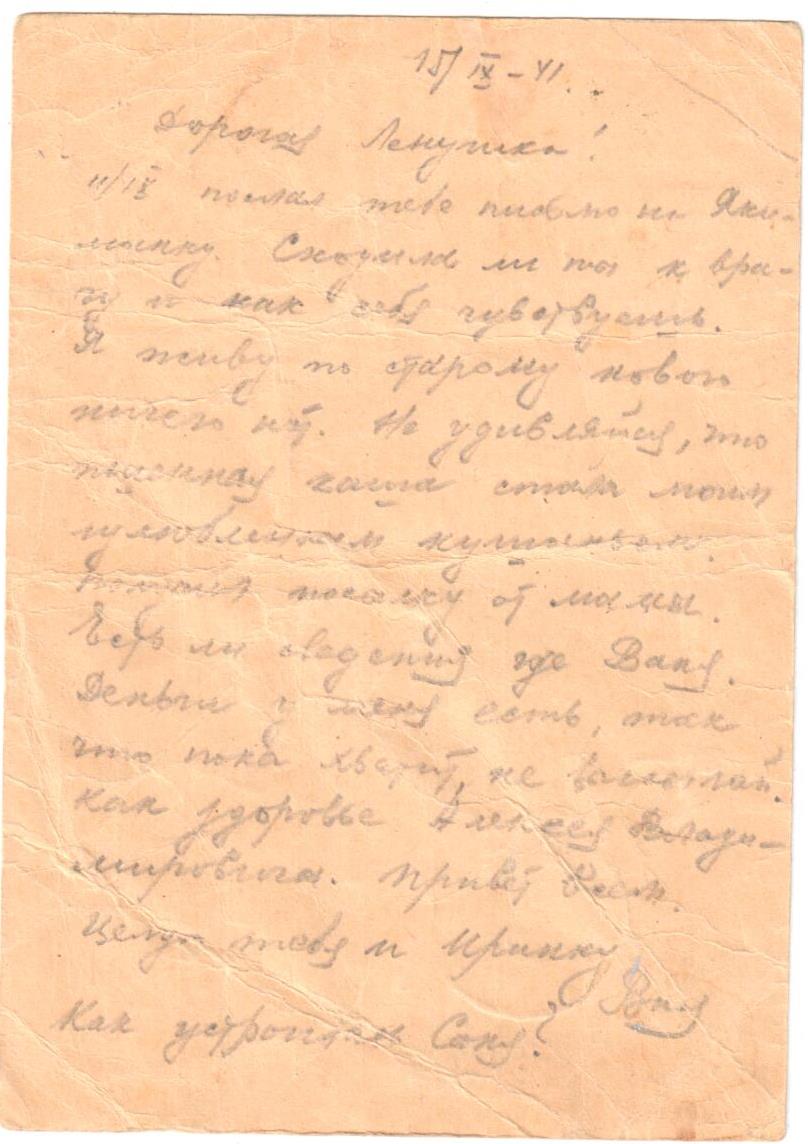 15/IX – 41.
Дорогая Ленушка!
11/IX послал тебе письмо на Яки-
манку. Сходила ли ты к вра-
чу и как себя чувствуешь.
Я живу по старому нового
ничего нет. Не удивляйся, что
пшенная каша стала моим
излюбленным кушаньем.
посылку от мамы.
Есть ли сведения где Ваня.
Деньги у меня есть, так
что пока хватит, не высылай.
Как здоровье Алексея Влади-
мировича. Привет всем.
Целую тебя и Иринку
Ваня
Как устроилась Соня?